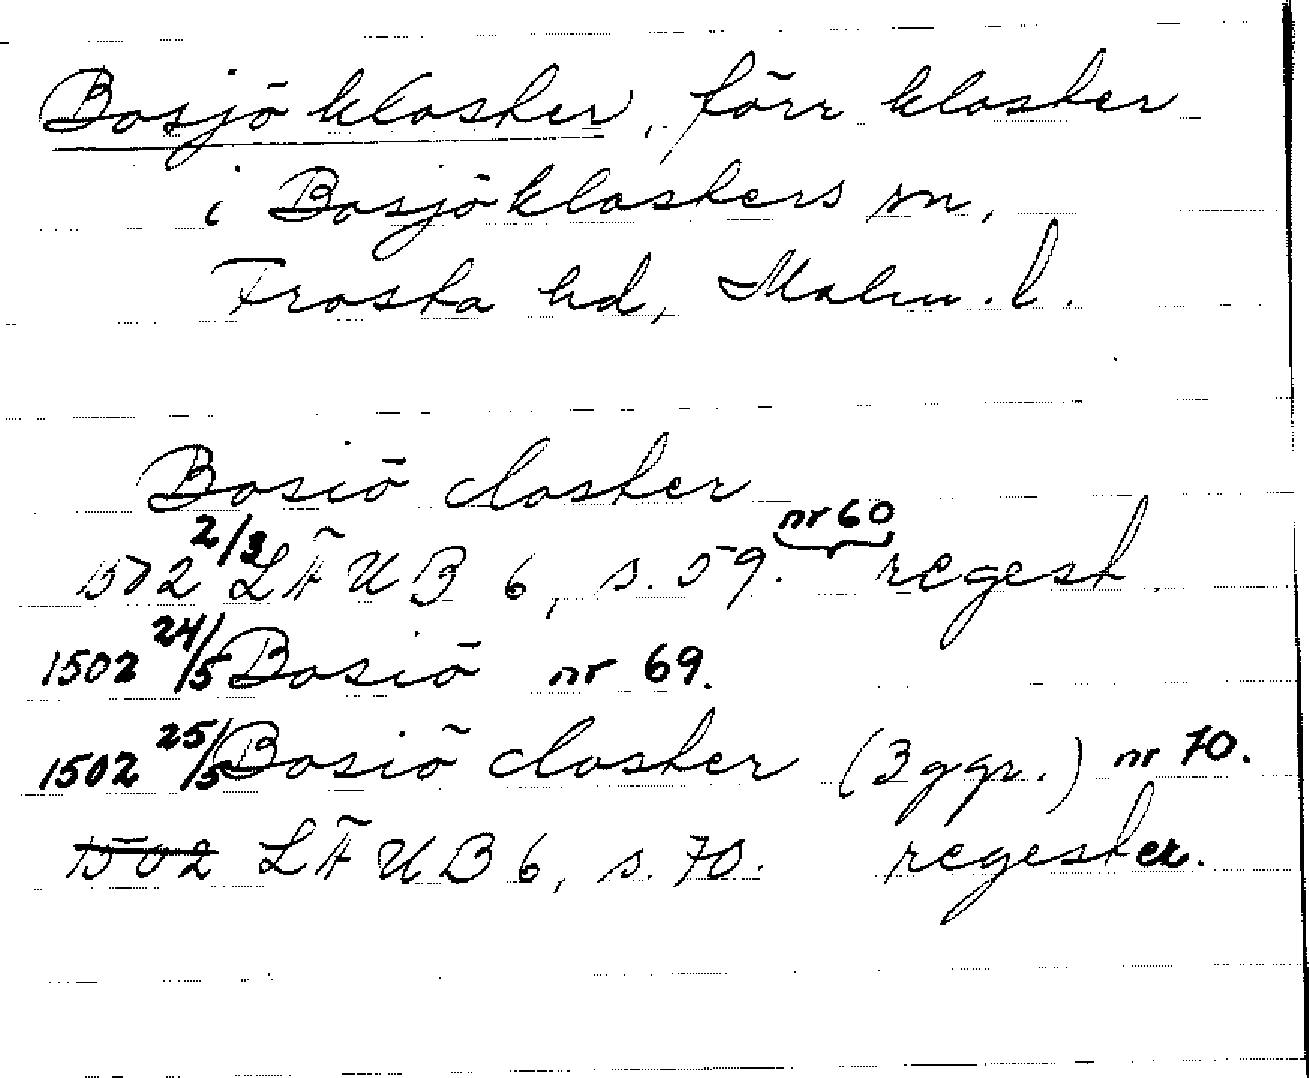 Bosjökloster, förr kloster
i Bosjöklosters sn,
Frosta hd, Malm. l.
Bosiö closter
nr 60
1502 2/3 LÄUB 6, s. 59. regest
1502 24/5 Bosiö nr 69.
1502 25/5 Bosiö closter (3 ggr.) nr 70.
1502 LÄUB 6, s. 70. regester.